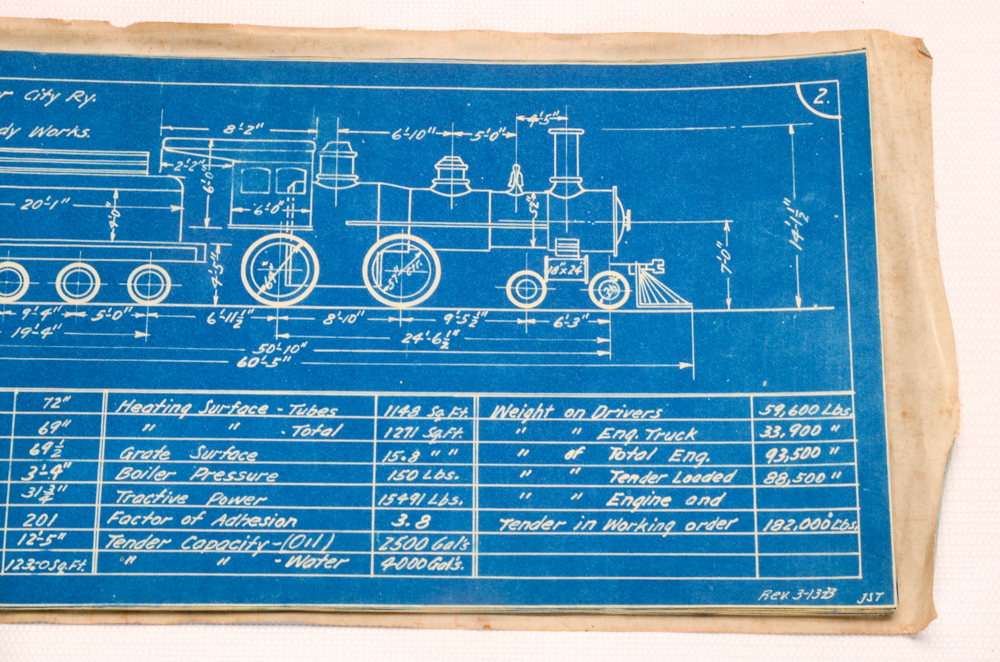 City Ry.
Works.
2.
8'-2"
6'-10"
5'-0"
4'-5"
2'-2"
6'-0"
6'-0"
20'-1"
4'-0"
52"
14'-1½"
7'-0"
4'-5"
18"x24"
9'-4"
5'-0"
6'-11½"
8'-10"
9'-5½"
6'-3"
19'-4"
24'-6½"
50'-10"
60'-5"
72" Heating Surface - Tubes 1148 Sq.Ft. Weight on Drivers 59,600 Lbs.
69" " " - Total 1271 Sq.Ft. " " Eng. Truck 33,900 "
69½ Grate Surface 15.8 " " " of Total Eng. 93,500 "
Boiler Pressure 150 Lbs. " " Tender Loaded 88,500 "
31¾" Tractive Power 15491 Lbs. " " Engine and
201 Factor of Adhesion 3.8 Tender in Working order 182,000 Lbs.
12'-5" Tender Capacity-(Oil) 2500 Gal's
Sq.Ft. " " - Water 4000 Gal's.
Rev. 3-13-23 JST